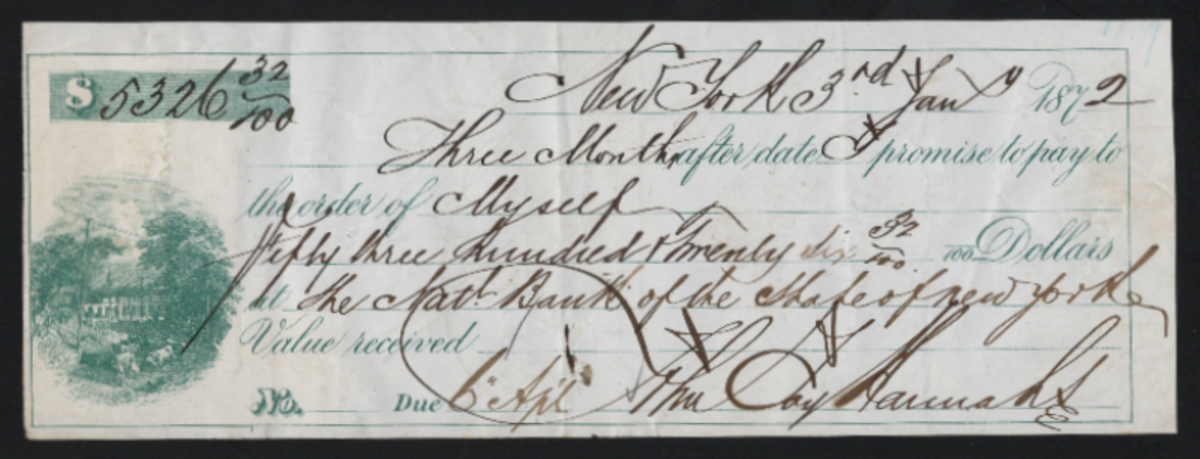 $ 5326 32/100
New York 3rd Jany 1872
Three Months after date I promise to pay to
the order of Myself
Fifty three Hundred & Twenty six 32/100 100 Dollars
at The Natl. Bank of the State of New York
Value received
No. Due 6 Apl Hannahs